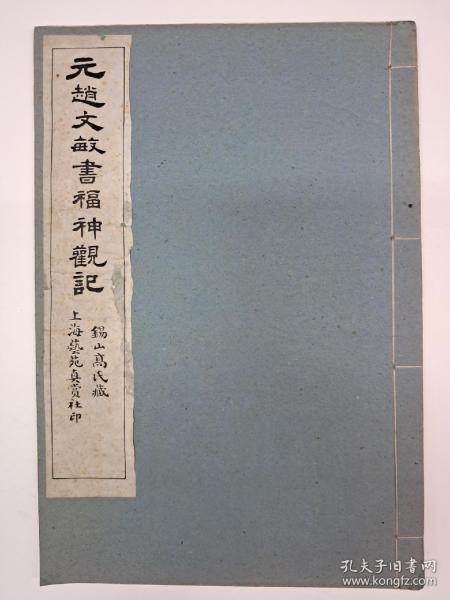 元趙文敏書福神觀記
錫山高氏藏
上海藝苑真賞社印
孔夫子旧书网
www.kongfz.com